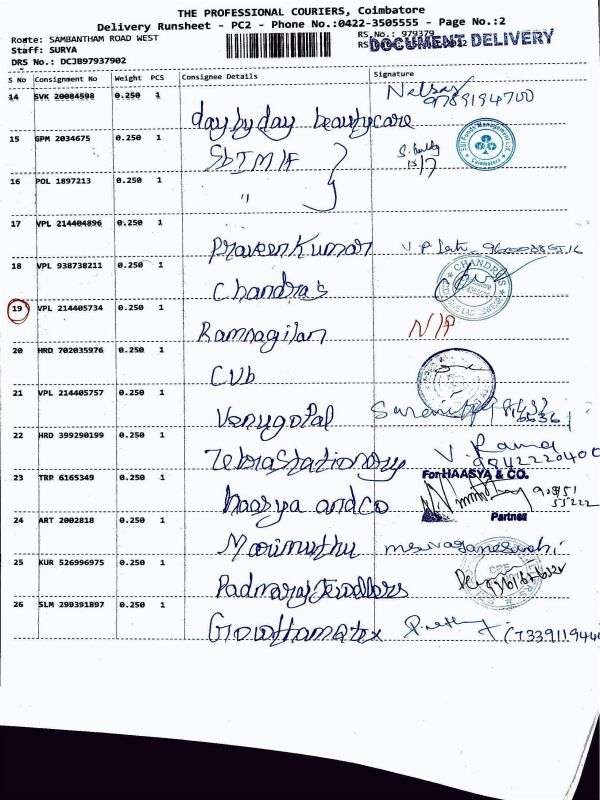 THE PROFESSIONAL COURIERS, Coimbatore
Delivery Runsheet - PC2 - Phone No.:0422-3505555 - Page No.:2
Route: SAMBANTHAM ROAD WEST
RS No.: 979379
Staff: SURYA
DOCUMENT DELIVERY
DRS No.: DCJB97937902
S No Consignment No Weight PCS Consignee Details Signature
14 SVK 20084598 0.250 1 day by day beautycare
9789194700
15 GPM 2034675 0.250 1 SbI M/F
SBI Funds Management Ltd. Coimbatore
16 POL 1897213 0.250 1 "
17 VPL 214404896 0.250 1 Praveen Kumar
18 VPL 938738211 0.250 1 Chandra's
CHANDRA'S
19 VPL 214405734 0.250 1 Ramnagilan N/P
20 HRD 702035976 0.250 1 CUb
21 VPL 214405757 0.250 1 Venugopal
22 HRD 399290199 0.250 1 Zebra Stationory V Rama
9842220400
23 TRP 6165349 0.250 1 haasya and co
For HAASYA & CO.
Partner
24 ART 2002818 0.250 1 Marimuthu
25 KUR 526996975 0.250 1 Padmaraj Jewellers
26 SLM 299391897 0.250 1 Gowthamatex